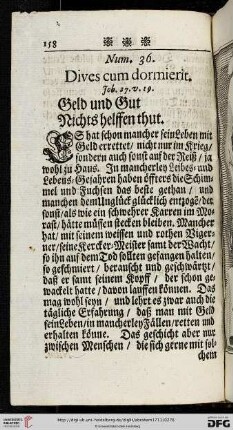 158 * * *
Num. 36.
Dives cum dormierit.
Job. 27. v. 19.
Geld und Gut
Nichts helffen thut.
ES hat schon mancher sein Leben mit
Geld errettet / nicht nur im Krieg /
sondern auch sonst auf der Reiß / ja
wohl zu Haus. In mancherley Leibes- und
Lebens-Gefahren haben öffters die Schim-
mel und Fuchsen das beste gethan / und
manchen dem Unglück glücklich entzogẽ / der
sonst / als wie ein schwehrer Karren im Mo-
rast / hätte müssen stecken bleiben. Mancher
hat / mit seinem weissen und rothen
ner / seine Kercker-Meister samt der Wacht /
so ihn auf dem Tod sollten gefangen halten /
so geschmiert / berauscht und geschwärtzt /
daß er samt seinem Kopff / der schon ge-
wackelt hatte / davon lauffen können. Das
mag wohl seyn / und lehrt es zwar auch die
tägliche Erfahrung / daß man mit Geld
sein Leben / in mancherley Fällen / retten und
erhalten könne. Das geschicht aber nur
zwischen Menschen / die sich gerne mit sol-
chem
UNIVERSITÄTS-
BIBLIOTHEK
HEIDELBERG
DFG